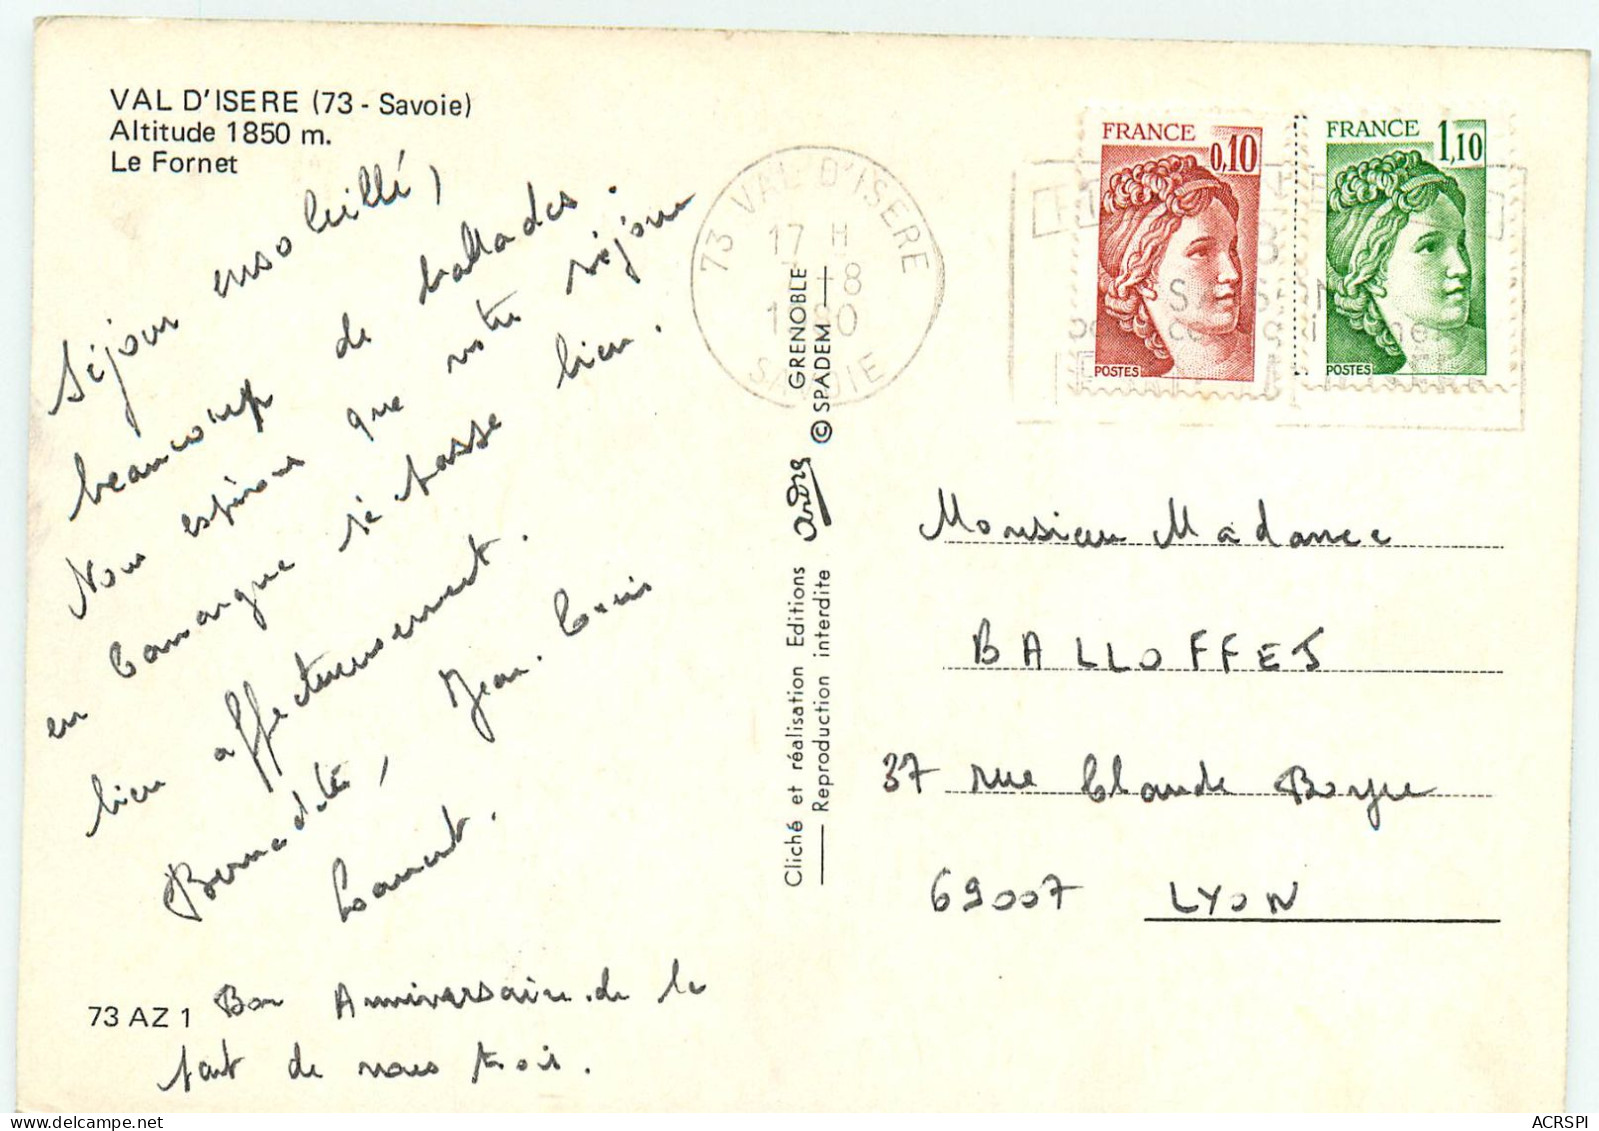 VAL D'ISERE (73 - Savoie)
Altitude 1850 m.
Le Fornet
Séjour ensoleillé,
beaucoup de ballades.
Nous espérons que votre séjour
en Camargue s'é passe bien.
bien affectueusement.
Bernadette, Jean-Louis
Laurent.
Bon Anniversaire de la
part de nous trois.
73 AZ 1
Cliché et réalisation Editions andré GRENOBLE
Reproduction interdite © SPADEM
73 VAL D'ISERE
17 H
-8
SAVOIE
FRANCE
0,10
POSTES
FRANCE
1,10
POSTES
Monsieur Madame
BALLOFFET
37 rue Claude Boyer
69007 LYON
ACRSPI